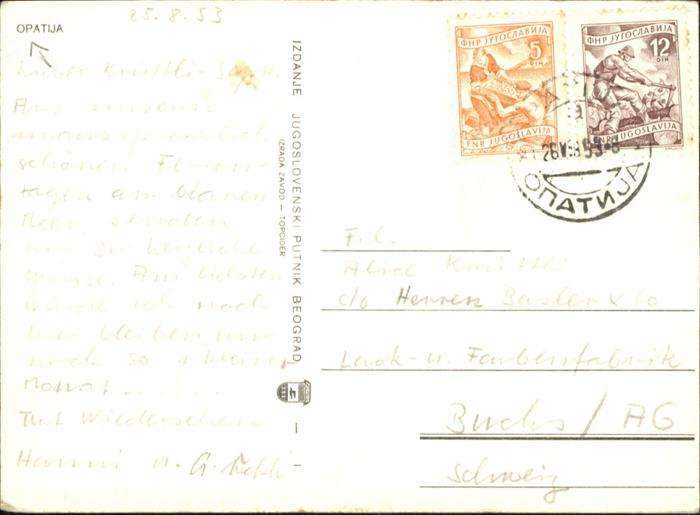 25.8.53
OPATIJA
Aus unseren
schönen Ferien-
tagen am blauen
Meer senden
wir Dir herzliche
Grüsse. Am liebsten
würde ich noch
hier bleiben, nur
noch so 1 kleinen
Monat .......
Auf Wiedersehen
Hanni u. G.
IZDANJE JUGOSLOVENSKI PUTNIK BEOGRAD
IZRADA ZAVOD — TOPČIDER
ФНР ЈУГОСЛАВИЈА
5
DIN
FNR JUGOSLAVIJA
ФНР ЈУГОСЛАВИЈА
12
DIN
FNR JUGOSLAVIJA
ОПАТИЈА
Frl.
Alice
c/o Herren Basler & Co
Lack- u. Farbenfabrik
Buchs / AG
Schweiz